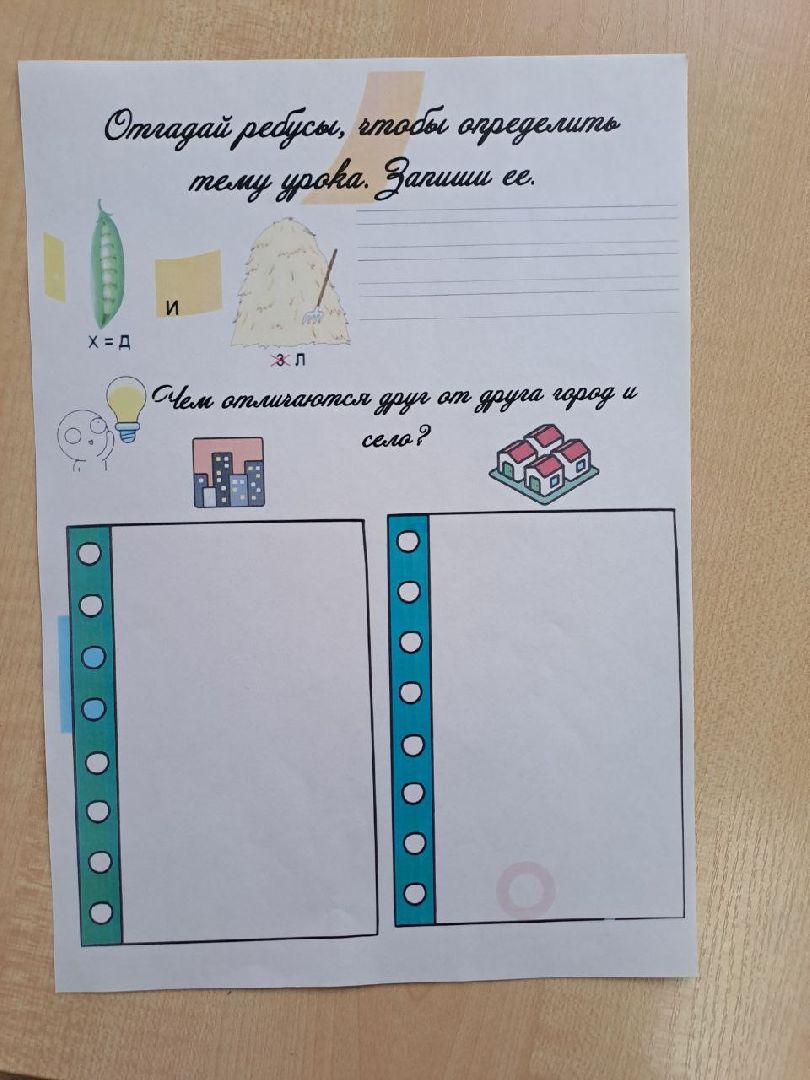 Отгадай ребусы, чтобы определить
тему урока. Запиши ее.
И
Х = Д
З Л
Чем отличаются друг от друга город и
село?